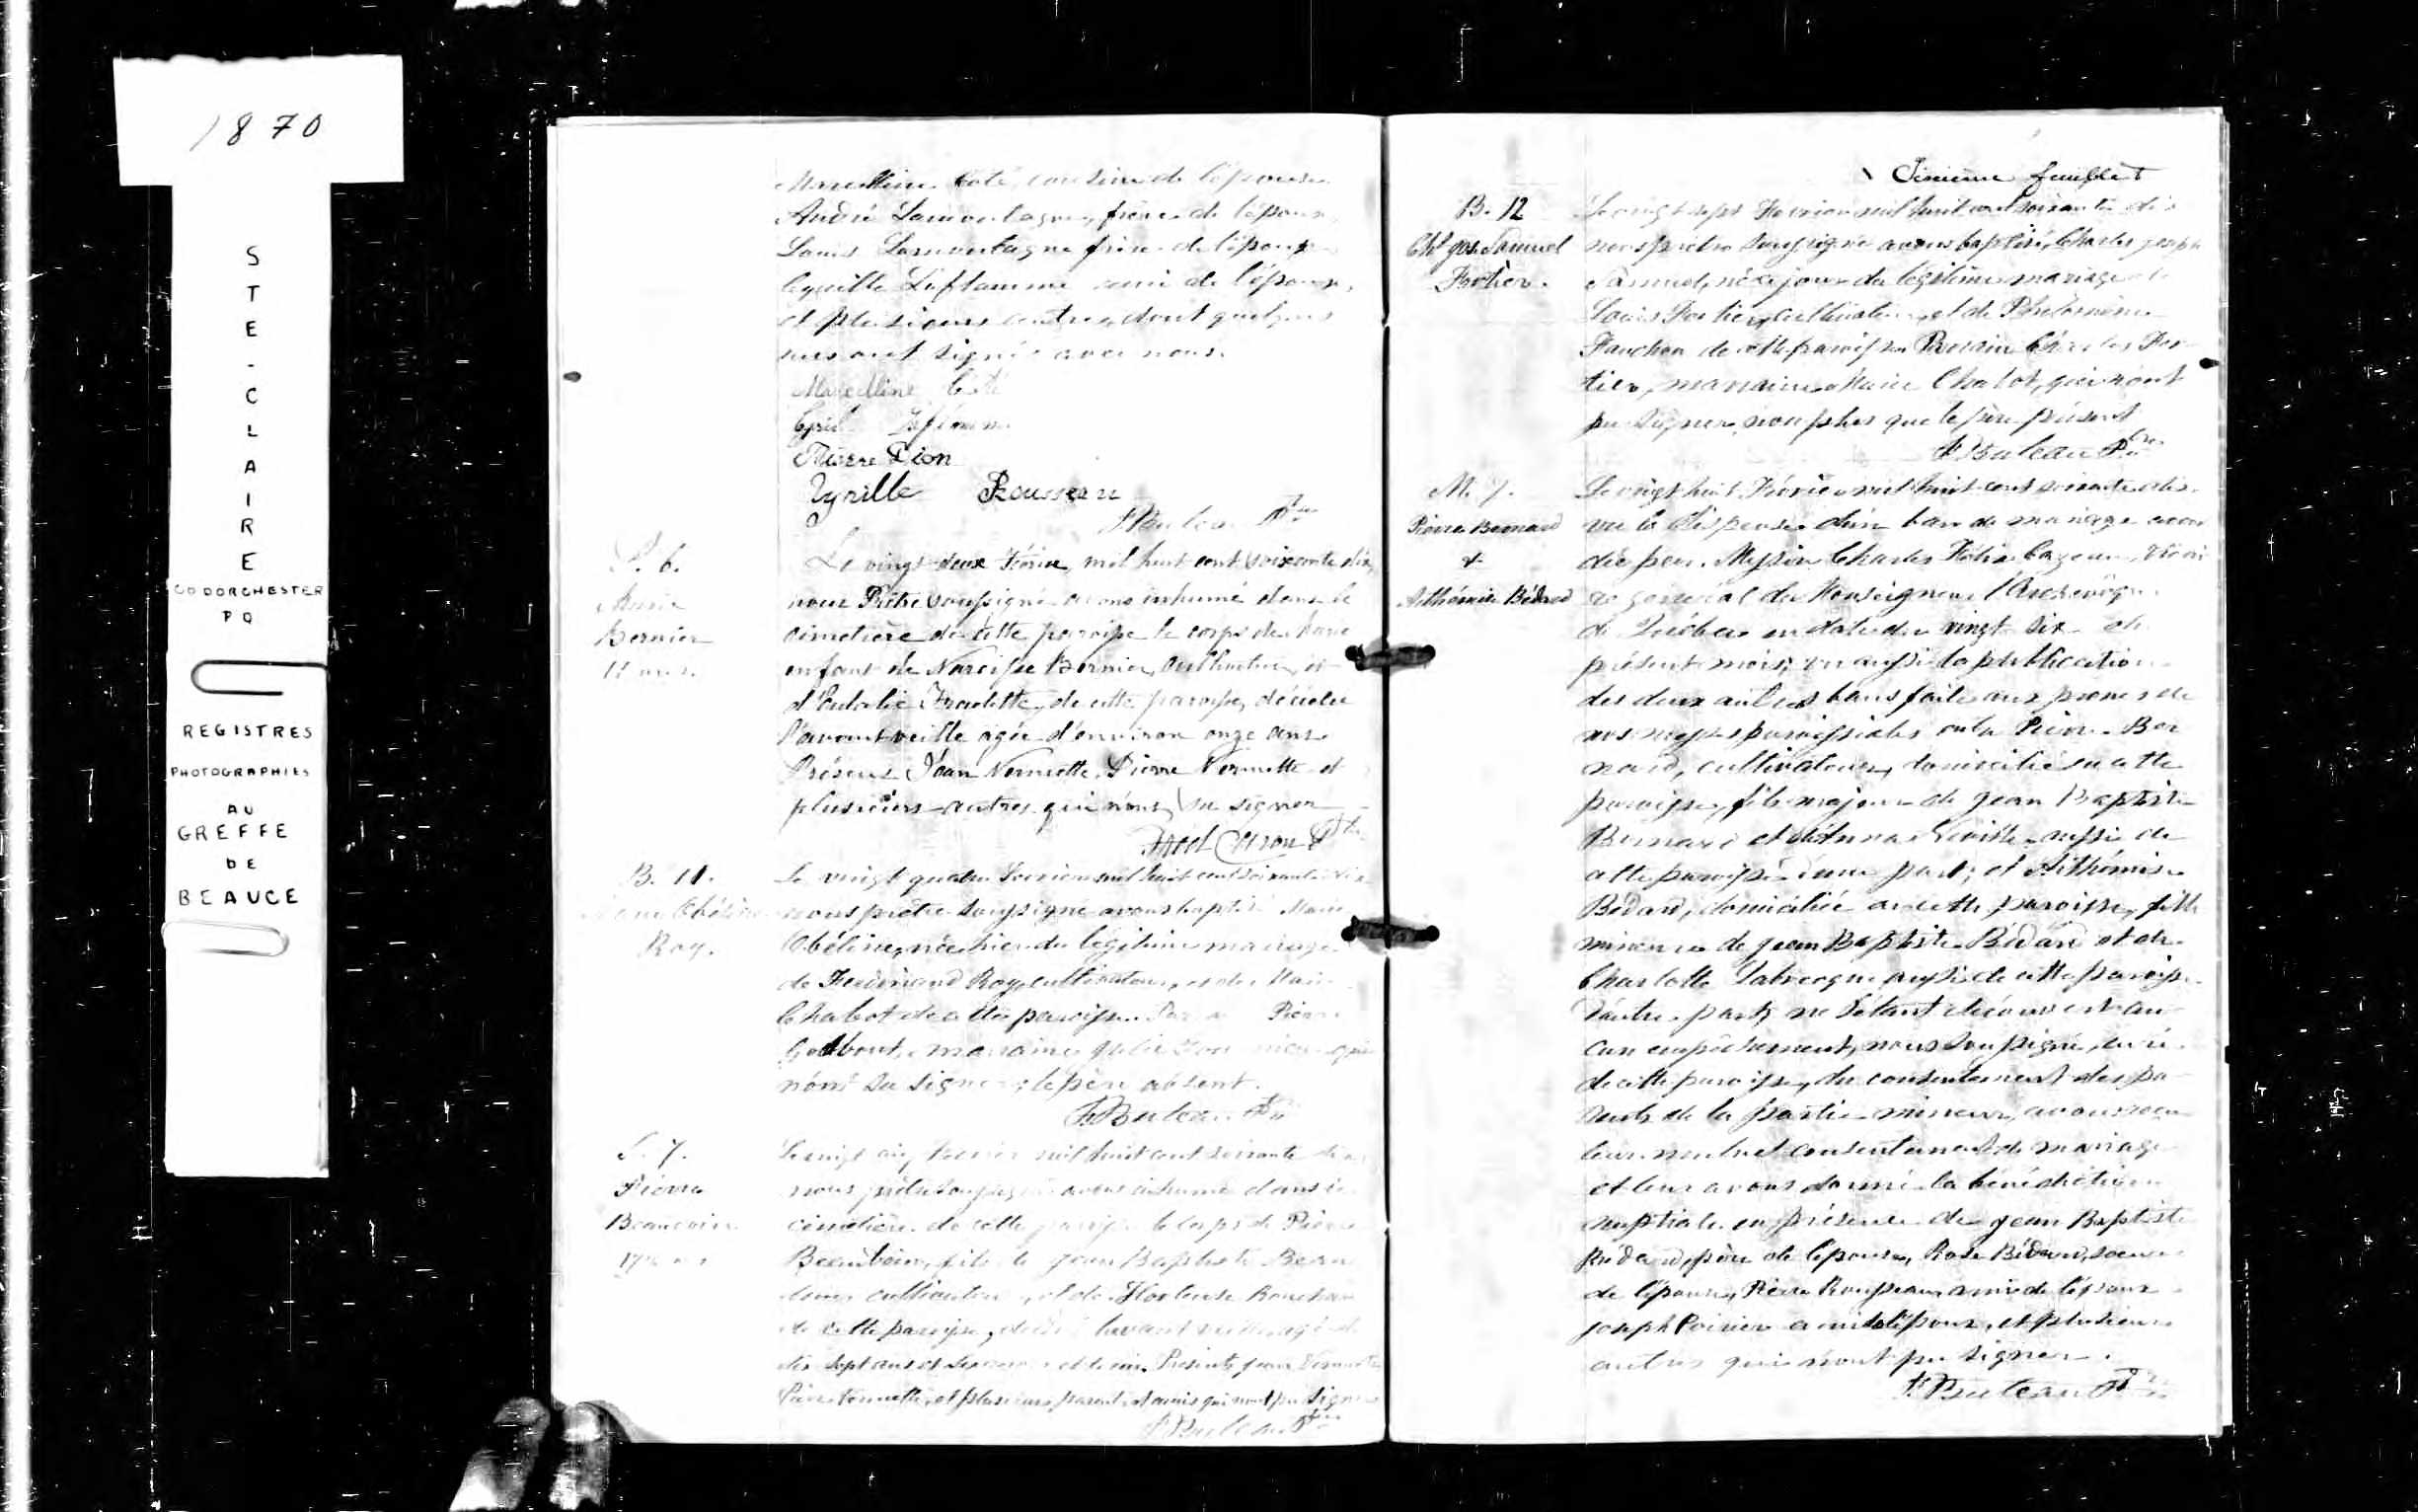 1870
STE-CLAIRE
CO DORCHESTER
P Q
REGISTRES
PHOTOGRAPHIES
AU
GREFFE
DE
BEAUCE
Marcelline Coté, cousine de l'épouse
André Lamontagne, frère de l'épouse
Louis Lamontagne frère de l'épouse
Cyrille Laflamme ami de l'époux,
et plusieurs autres, dont quelques
uns ont signé avec nous.
Marcelline Coté
Pierre Dion
Cyrille Rousseau
Buteau Ptre
S. 6.
Marie
Bernier
11 ans.
Le vingt-deux Février mil huit cent soixante dix,
nous Prêtre soussigné avons inhumé dans le
cimetière de cette paroisse le corps de Marie
enfant de Narcisse Bernier, cultivateur, et
d'Eulalie de cette paroisse, décédée
l'avant-veille agée d'environ onze ans
Présens Jean Vermette, Pierre Vermette et
plusieurs autres qui n'ont su signer
Caron Ptre
B. 11.
Marie Obéline
Roy.
Le vingt quatre Février mil huit cent soixante dix
nous prêtre soussigné avons baptisé Marie
Obéline, née hier du légitime mariage
de Ferdinand Roy, cultivateur, et de Marie
Chabot de cette paroisse. Pierre
Godbout, marraine qui
n'ont su signer; le père absent.
Buteau Ptre
S. 7.
Pierre
Beaudoin
Le vingt cinq Février mil huit cent soixante dix
nous prêtre soussigné avons inhumé dans le
cimetière de cette paroisse le corps de Pierre
Beaudoin, fils de Jean Baptiste Beau
doin cultivateur, et de Hortense
de cette paroisse, décédé l'avant veille, agé de
dix sept ans et demi. Présents Jean Vermette
Pierre Vermette, et plusieurs parents et amis qui n'ont pu signer
Buteau Ptre
Sixième feuillet
B. 12
Chs Jos. Samuel
Fortier.
Le vingt sept Février mil huit cent soixante dix
nous prêtre soussigné avons baptisé, Charles Joseph
Samuel, né ce jour du légitime mariage de
Louis Fortier, cultivateur, et de Philomène
Fauchon de cette paroisse. Parrain Charles For
tier, marraine Marie Chabot, qui n'ont
pu signer, non plus que le père présent
Buteau Ptre
M. 7.
Pierre Bernard
&
Arthémise Bédard
Le vingt huit Février mil huit cent soixante dix
vu la dispense d'un ban de mariage accor
dée par Messire Charles Félix Cazeau, Vicai
re général de Monseigneur l'Archevêque
de Québec en date du vingt six du
présent mois; vu aussi la publication
des deux autres bans faite aux prônes de
nos messes paroissiales entre Pierre Ber
nard, cultivateur, domicilié en cette
paroisse, fils majeur de Jean Baptiste
Bernard et d'Anna aussi de
cette paroisse d'une part; et Arthémise
Bédard, domiciliée en cette paroisse, fille
mineure de Jean Baptiste Bédard et de
Charlotte Labrecque aussi de cette paroisse
d'autre part; ne s'étant découvert au
cun empêchement, nous soussigné, curé
de cette paroisse, du consentement des pa
rents de la partie mineure, avons reçu
leur mutuel consentement de mariage
et leur avons donné la bénédiction
nuptiale en présence de Jean Baptiste
Bédard, père de l'épouse, Rose Bédard, soeur
de l'épouse, Pierre Rousseau, ami de l'époux
Joseph Poirier ami de l'époux, et plusieurs
autres qui n'ont pu signer.
Buteau Ptre